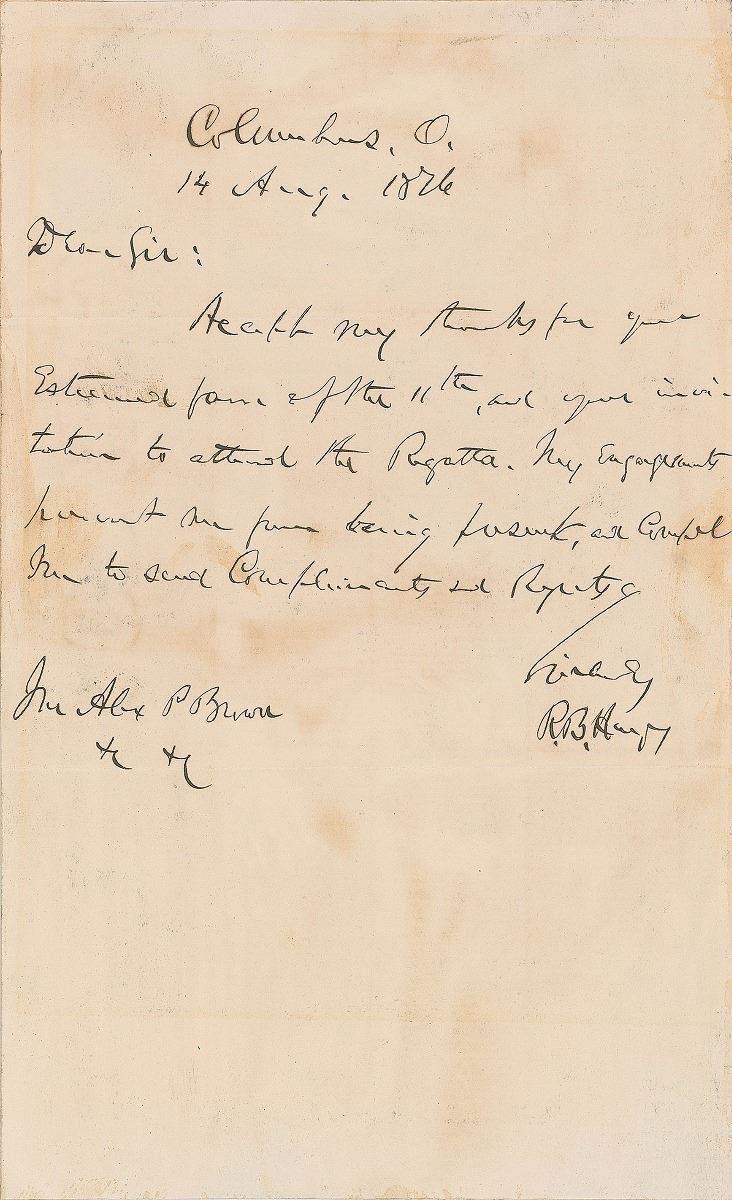 Columbus, O.
14 Aug. 1876
Dear Sir:
Accept my thanks for your
Esteemed favor of the 11th, and your invi-
tation to attend the Regatta. My Engagements
prevent me from being present, and Compel
me to send Compliments and Regrets
Sincerely
R.B. Hayes
Mr Alex P Brown
&c &c